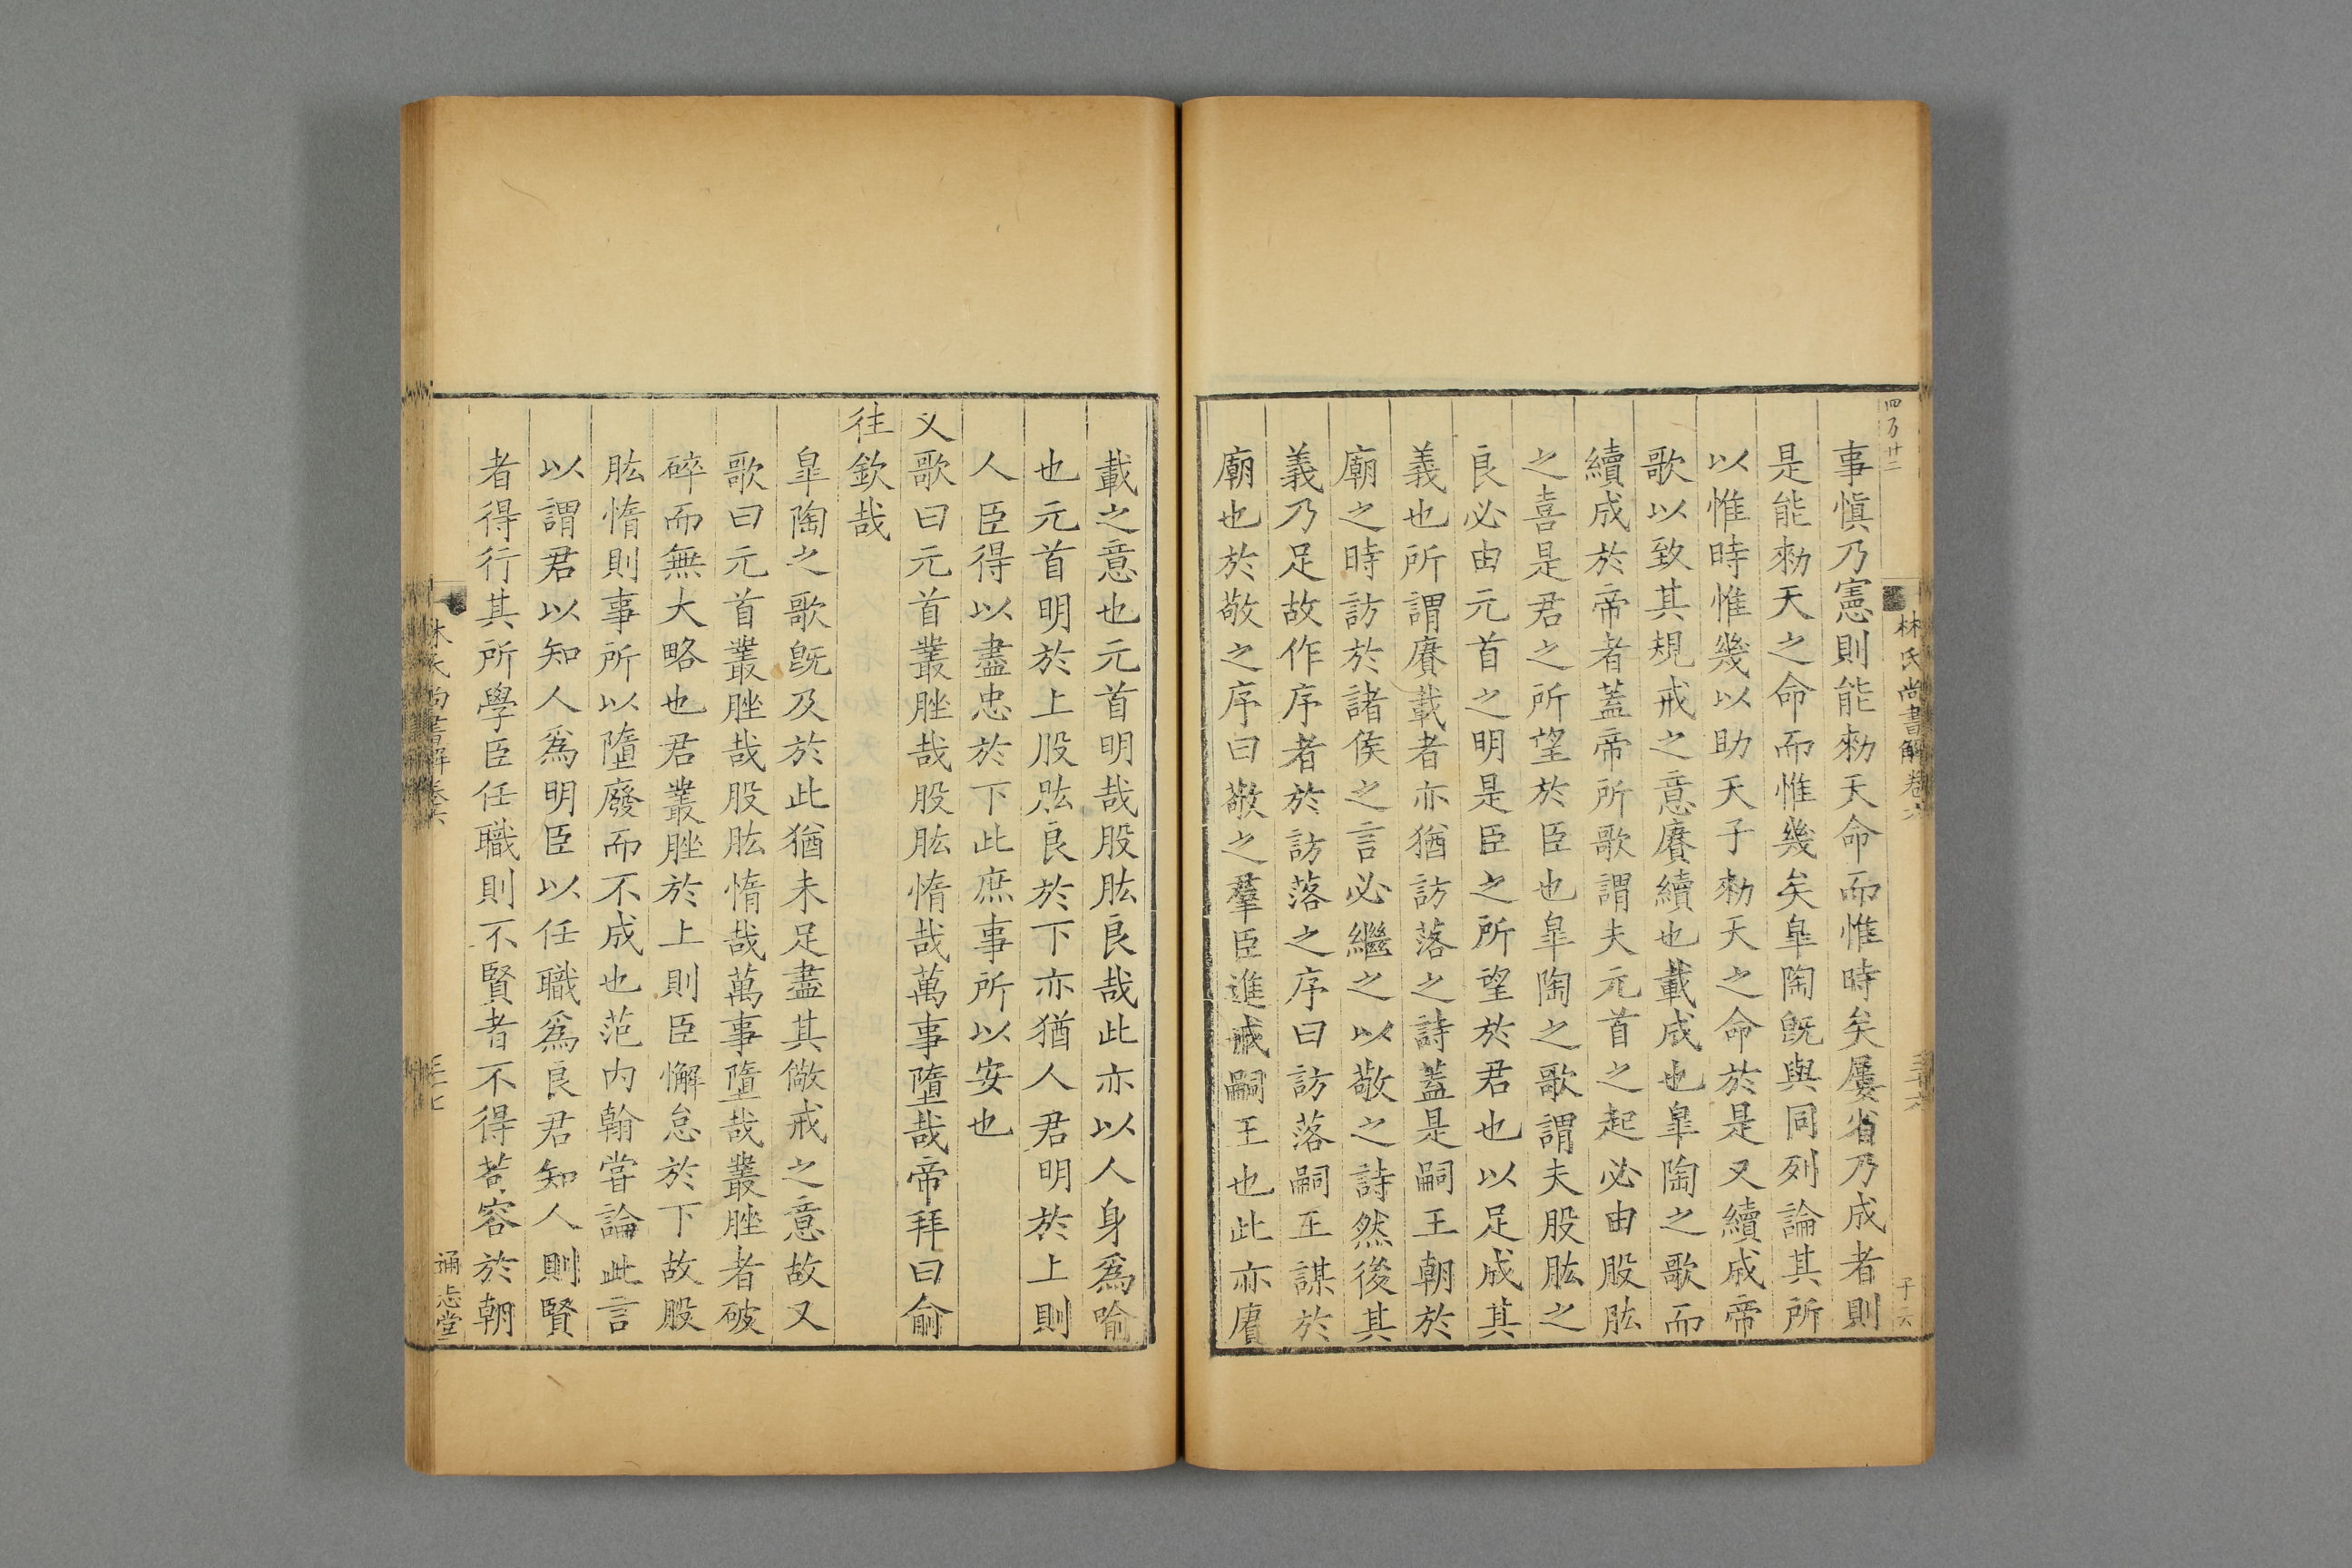 四乃廿二
林氏尚書解卷六
三十六
子云
事愼乃憲則能勑天命而惟時矣屢省乃成者則
是能勑天之命而惟幾矣皐陶旣與同列論其所
以惟時惟幾以助天子勑天之命於是又續成帝
歌以致其規戒之意賡續也載成也皐陶之歌而
續成於帝者蓋帝所歌謂夫元首之起必由股肱
之喜是君之所望於臣也皐陶之歌謂夫股肱之
良必由元首之明是臣之所望於君也以足成其
義也所謂賡載者亦猶訪落之詩蓋是嗣王朝於
廟之時訪於諸侯之言必繼之以敬之詩然後其
義乃足故作序者於訪落之序曰訪落嗣王謀於
廟也於敬之序曰敬之羣臣進戒嗣王也此亦賡
載之意也元首明哉股肱良哉此亦以人身爲喻
也元首明於上股肱良於下亦猶人君明於上則
人臣得以盡忠於下此庶事所以安也
又歌曰元首叢脞哉股肱惰哉萬事墮哉帝拜曰俞
往欽哉
皐陶之歌旣及於此猶未足盡其儆戒之意故又
歌曰元首叢脞哉股肱惰哉萬事墮哉叢脞者破
碎而無大略也君叢脞於上則臣懈怠於下故股
肱惰則事所以墮廢而不成也范内翰嘗論此言
以謂君以知人爲明臣以任職爲良君知人則賢
者得行其所學臣任職則不賢者不得茍容於朝
林氏尚書解卷六
三十七
通志堂